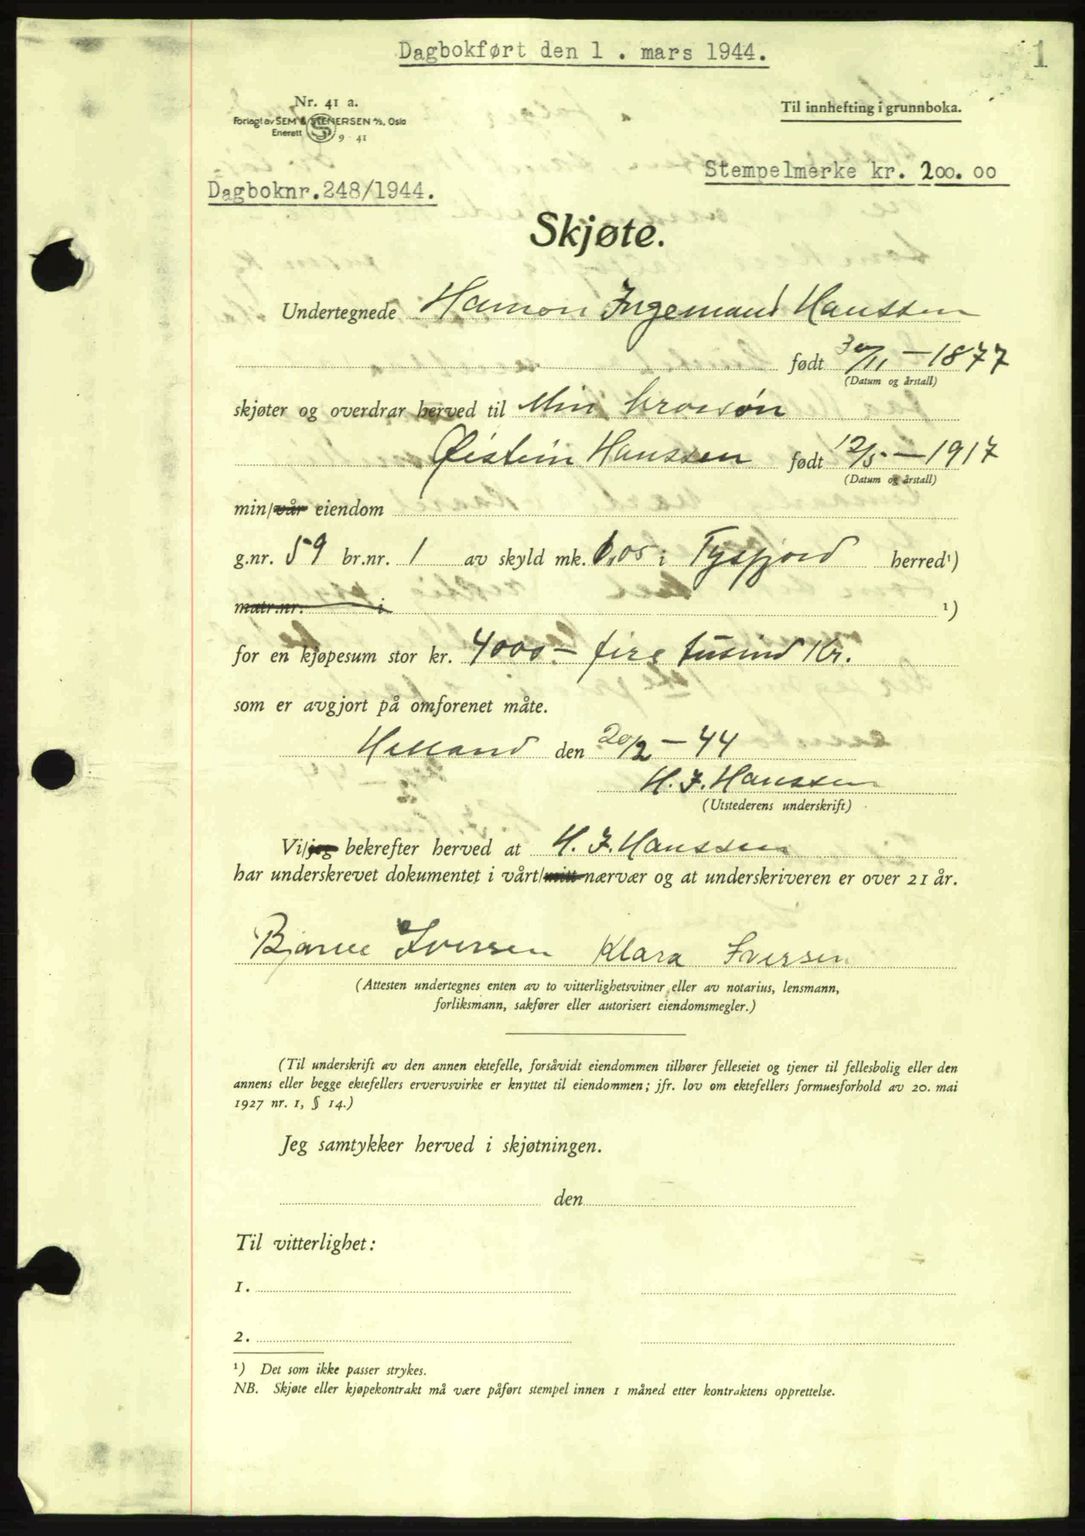 Dagbokført den 1 . mars 1944.
1
Nr. 41 a.
Forlagt av SEM & STENERSEN A/S, Oslo
Enerett 9 - 41
Til innhefting i grunnboka.
Stempelmerke kr. 200.00
Dagboknr.248/1944.
Skjøte.
Undertegnede Hamon Ingemand Hanssen
født 30/11 - 1877
(Datum og årstall)
skjøter og overdrar herved til Min brorsøn
Øistein Hanssen født 12/5 - 1917
(Datum og årstall)
min/vår eiendom
g.nr. 59 br.nr. 1 av skyld mk. 6,05 i Tysfjord herred¹)
matr.nr. i ¹)
for en kjøpesum stor kr. 4000 - fire tusind Kr.
som er avgjort på omforenet måte.
Helland den 20/2 - 44
H. J. Hanssen
(Utstederens underskrift)
Vi/jeg bekrefter herved at H. J. Hanssen
har underskrevet dokumentet i vårt/mitt nærvær og at underskriveren er over 21 år.
Bjarne Iversen Klara Iversen
(Attesten undertegnes enten av to vitterlighetsvitner eller av notarius, lensmann,
forliksmann, sakfører eller autorisert eiendomsmegler.)
(Til underskrift av den annen ektefelle, forsåvidt eiendommen tilhører felleseiet og tjener til fellesbolig eller den
annens eller begge ektefellers ervervsvirke er knyttet til eiendommen; jfr. lov om ektefellers formuesforhold av 20. mai
1927 nr. 1, § 14.)
Jeg samtykker herved i skjøtningen.
den
Til vitterlighet:
1.
2.
¹) Det som ikke passer strykes.
NB. Skjøte eller kjøpekontrakt må være påført stempel innen 1 måned etter kontraktens opprettelse.